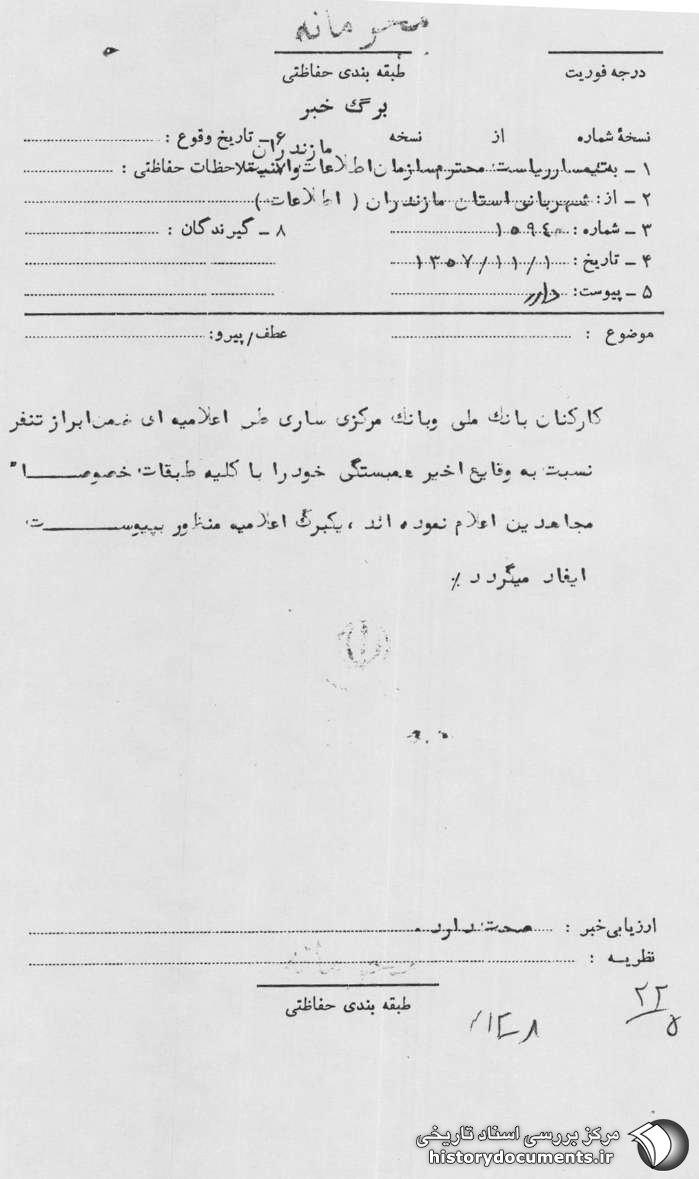 محرمانه
درجه فوریت
طبقه بندی حفاظتی
برگ خبر
نسخهٔ شماره از نسخه
۶ ـ تاریخ وقوع :
۱ ـ به تیمسار ریاست محترم سازمان اطلاعات و امنیت مازندران
ملاحظات حفاظتی :
۲ ـ از : شهربانی استان مازندران ( اطلاعات )
۳ ـ شماره : ۱۵۹۴۰
۸ ـ گیرندگان :
۴ ـ تاریخ : ۱۳۵۷/۱۱/۱
۵ ـ پیوست : دارد
موضوع :
عطف/پیرو:
کارکنان بانك ملی وبانك مرکزی ساری طی اعلامیه ای ضمن ابراز تنفر
نسبت به وقایع اخیر همبستگی خود را با کلیه طبقات خصوصـــا"
مجاهدین اعلام نموده اند ، یکبرگ اعلامیه منظور بپیوســـت
ایفاد میگردد ٪
ارزیابی خبر : صحت دارد .
نظریـه :
محرمانه
طبقه بندی حفاظتی
۲۲
۵
مرکز بررسی اسناد تاریخی
historydocuments.ir